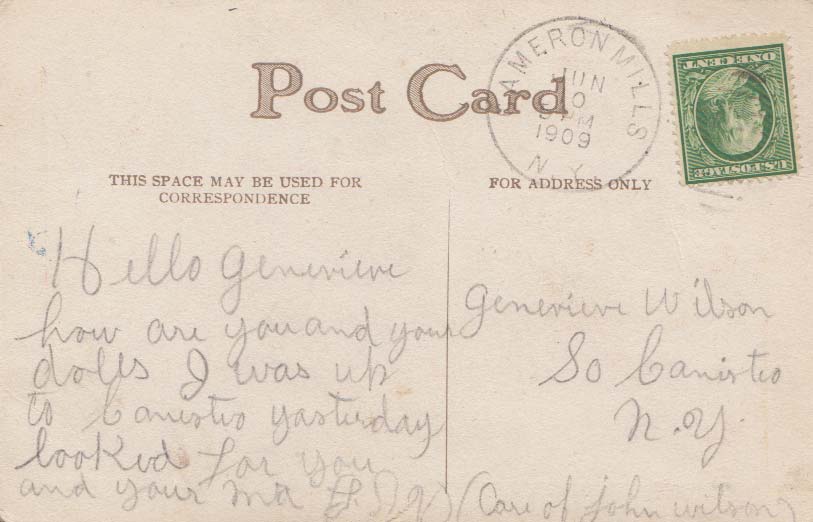 Post Card
CAMERON MILLS
JUN
1909
N.Y.
U.S. POSTAGE
ONE CENT
THIS SPACE MAY BE USED FOR
CORRESPONDENCE
FOR ADDRESS ONLY
Hello Genevieve
how are you and your
dolls I was up
to Canisteo yasterday
looked for you
and your ma
Genevieve Wilson
So Canisteo
N.Y.
(Care of John Wilson)